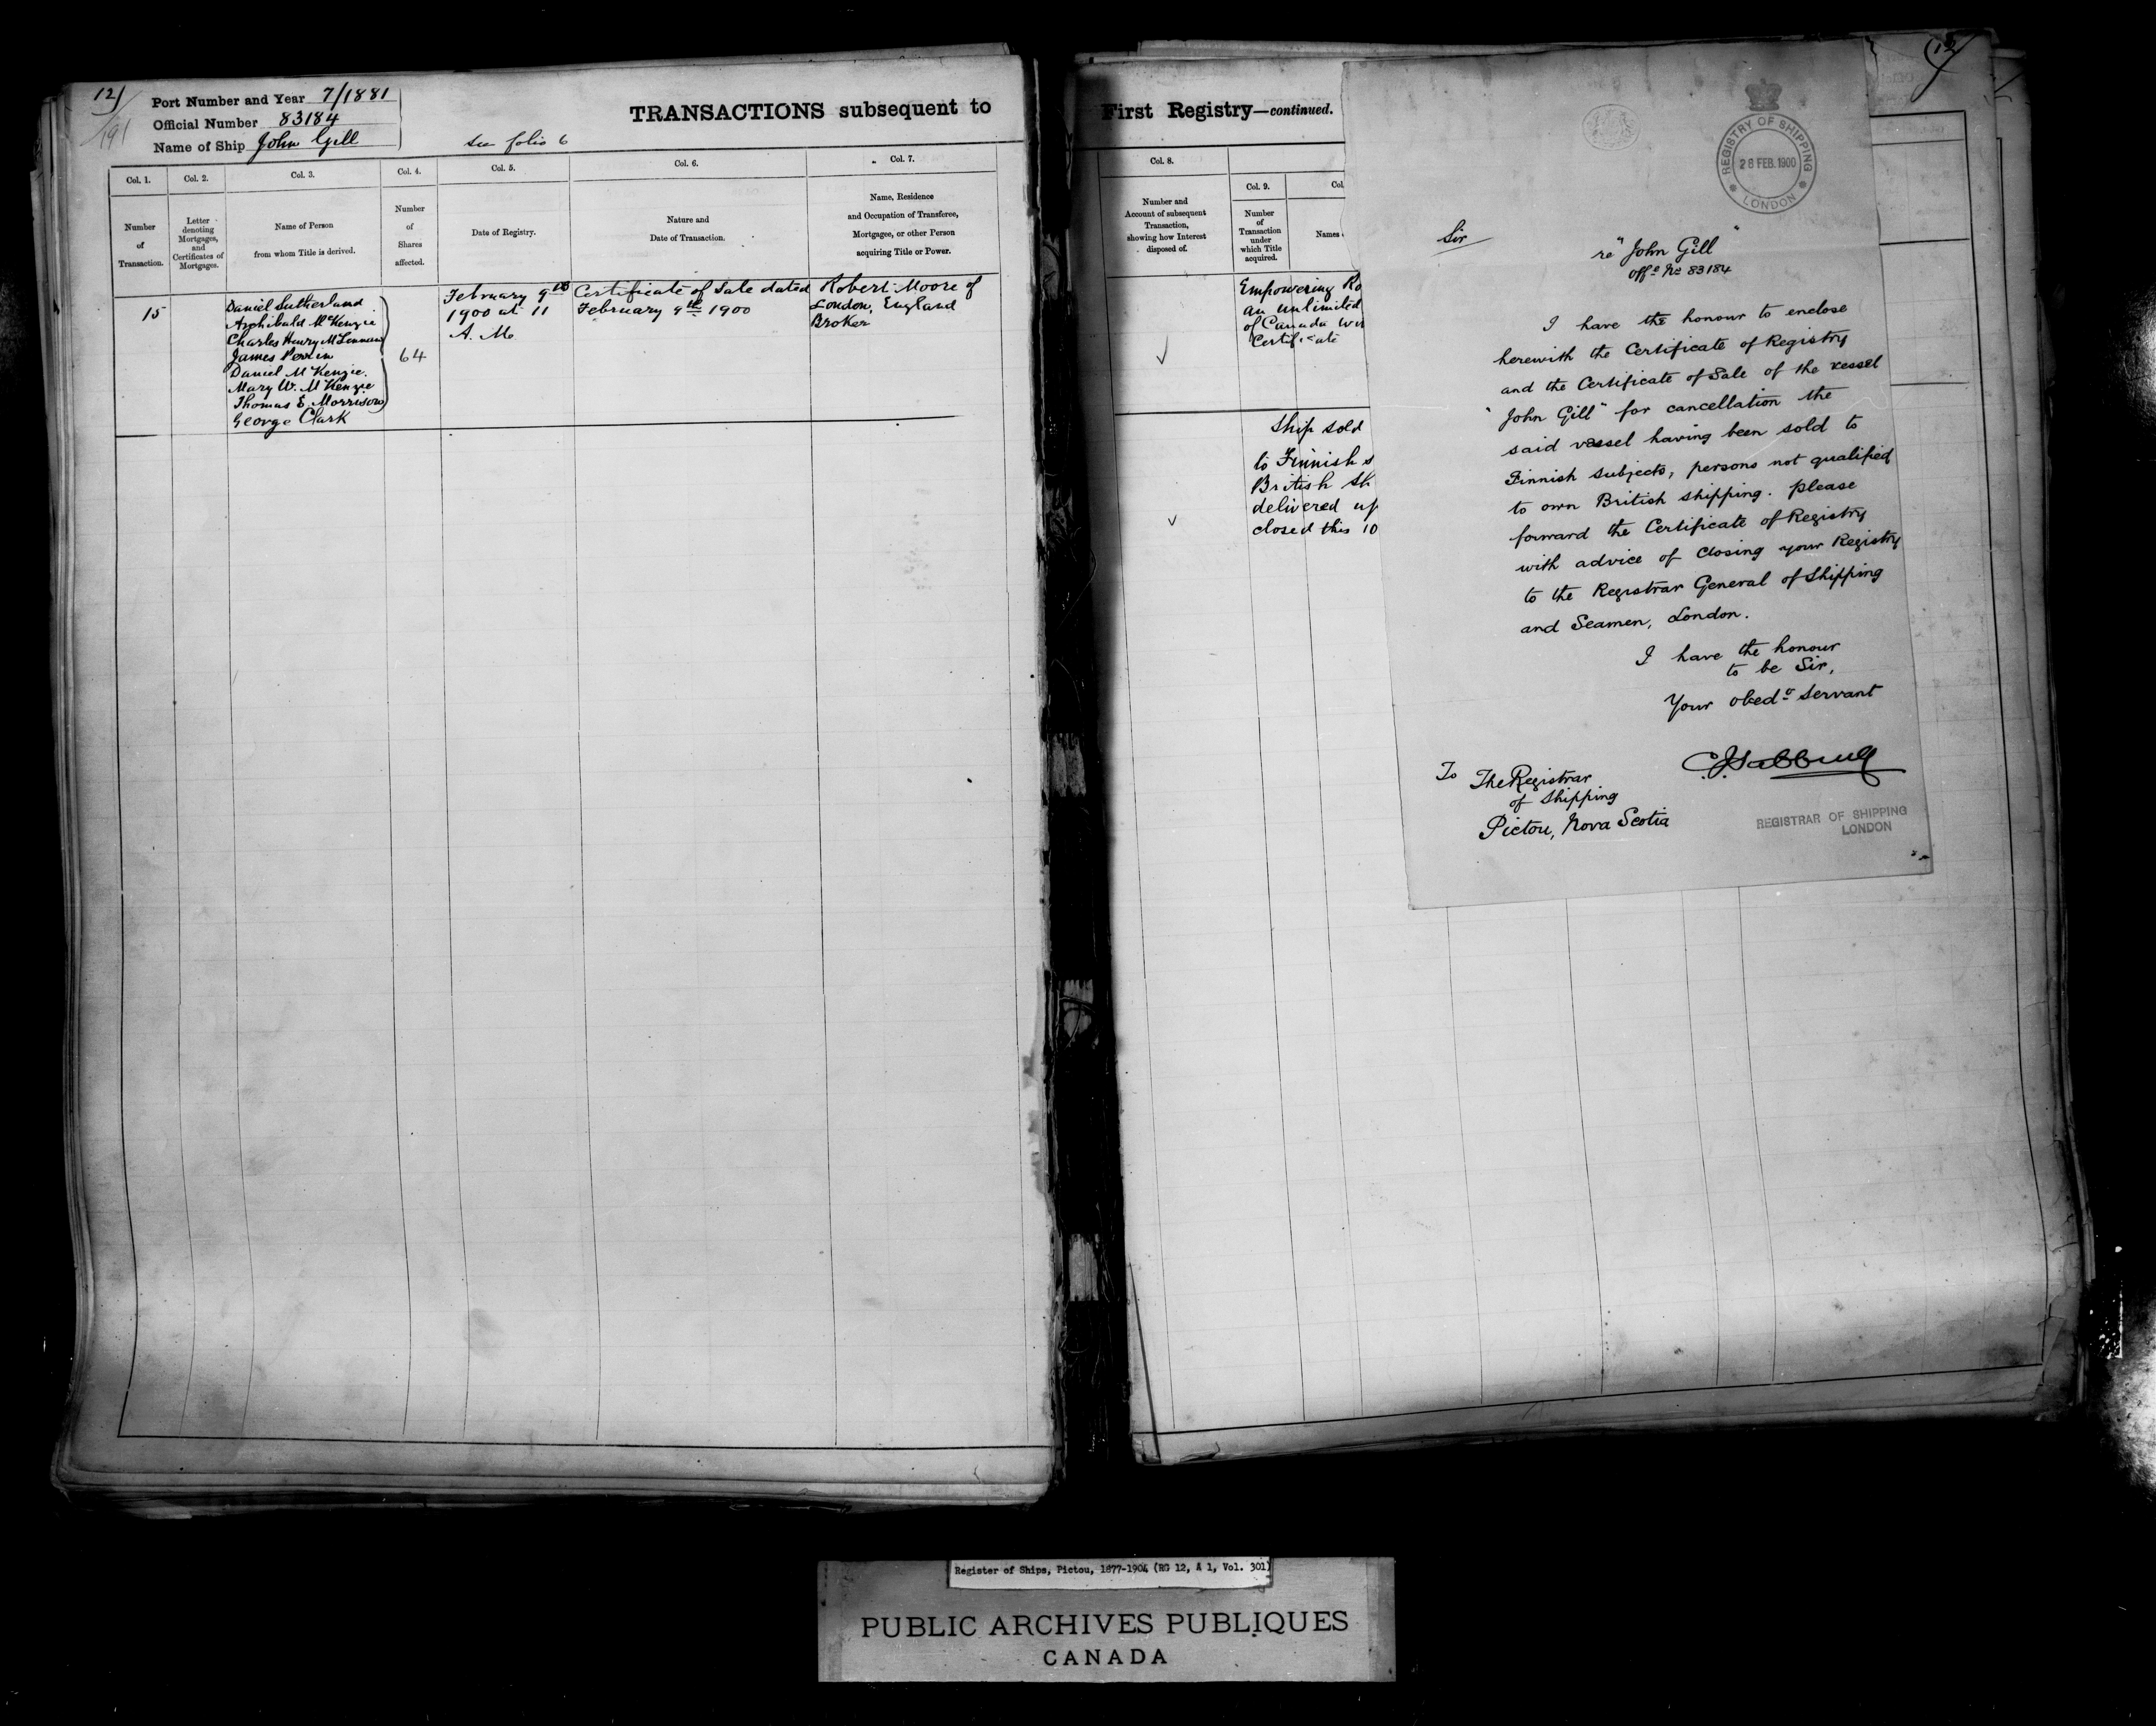 12)
191
Port Number and Year 7/1881
Official Number 83184
Name of Ship John Gill
see folio 6
TRANSACTIONS subsequent to
Col. 1.
Col. 2.
Col. 3.
Col. 4.
Col. 5.
Col. 6.
Col. 7.
Number
of
Transaction.
Letter
denoting
Mortgages,
and
Certificates of
Mortgages.
Name of Person
from whom Title is derived.
Number
of
Shares
affected.
Date of Registry.
Nature and
Date of Transaction.
Name, Residence
and Occupation of Transferee,
Mortgagee, or other Person
acquiring Title or Power.
15
Daniel Sutherland
Archibald McKenzie
Charles Henry McLennan
James Perrin
Daniel McKenzie.
Mary W. McKenzie
Thomas E Morrison
George Clark
64
February 9th
1900 at 11
A. M.
Certificate of Sale dated
February 9th 1900
Robert Moore of
London, England
Broker
First Registry—continued.
Col. 8.
Number and
Account of subsequent
Transaction,
showing how Interest
disposed of.
Col. 9.
Number
of
Transaction
under
which Title
acquired.
Col
Names
Empowering Ro
an unlimited
of Canada
Certificate
Ship sold
to Finnish s
British Sh
delivered up
closed this 10
(12)
REGISTRY OF SHIPPING
28 FEB. 1900
LONDON
Sir
re "John Gill"
Offl No 83184
I have the honour to enclose
herewith the Certificate of Registry
and the Certificate of Sale of the vessel
"John Gill" for cancellation the
said vessel having been sold to
Finnish subjects, persons not qualified
to own British shipping. Please
forward the Certificate of Registry
with advice of closing your Registry
to the Registrar General of Shipping
and Seamen, London.
I have the honour
to be Sir,
Your obedt servant
To The Registrar
of Shipping
Pictou, Nova Scotia
REGISTRAR OF SHIPPING
LONDON
Register of Ships, Pictou, 1877-1904 (RG 12, A 1, Vol. 301)
PUBLIC ARCHIVES PUBLIQUES
CANADA